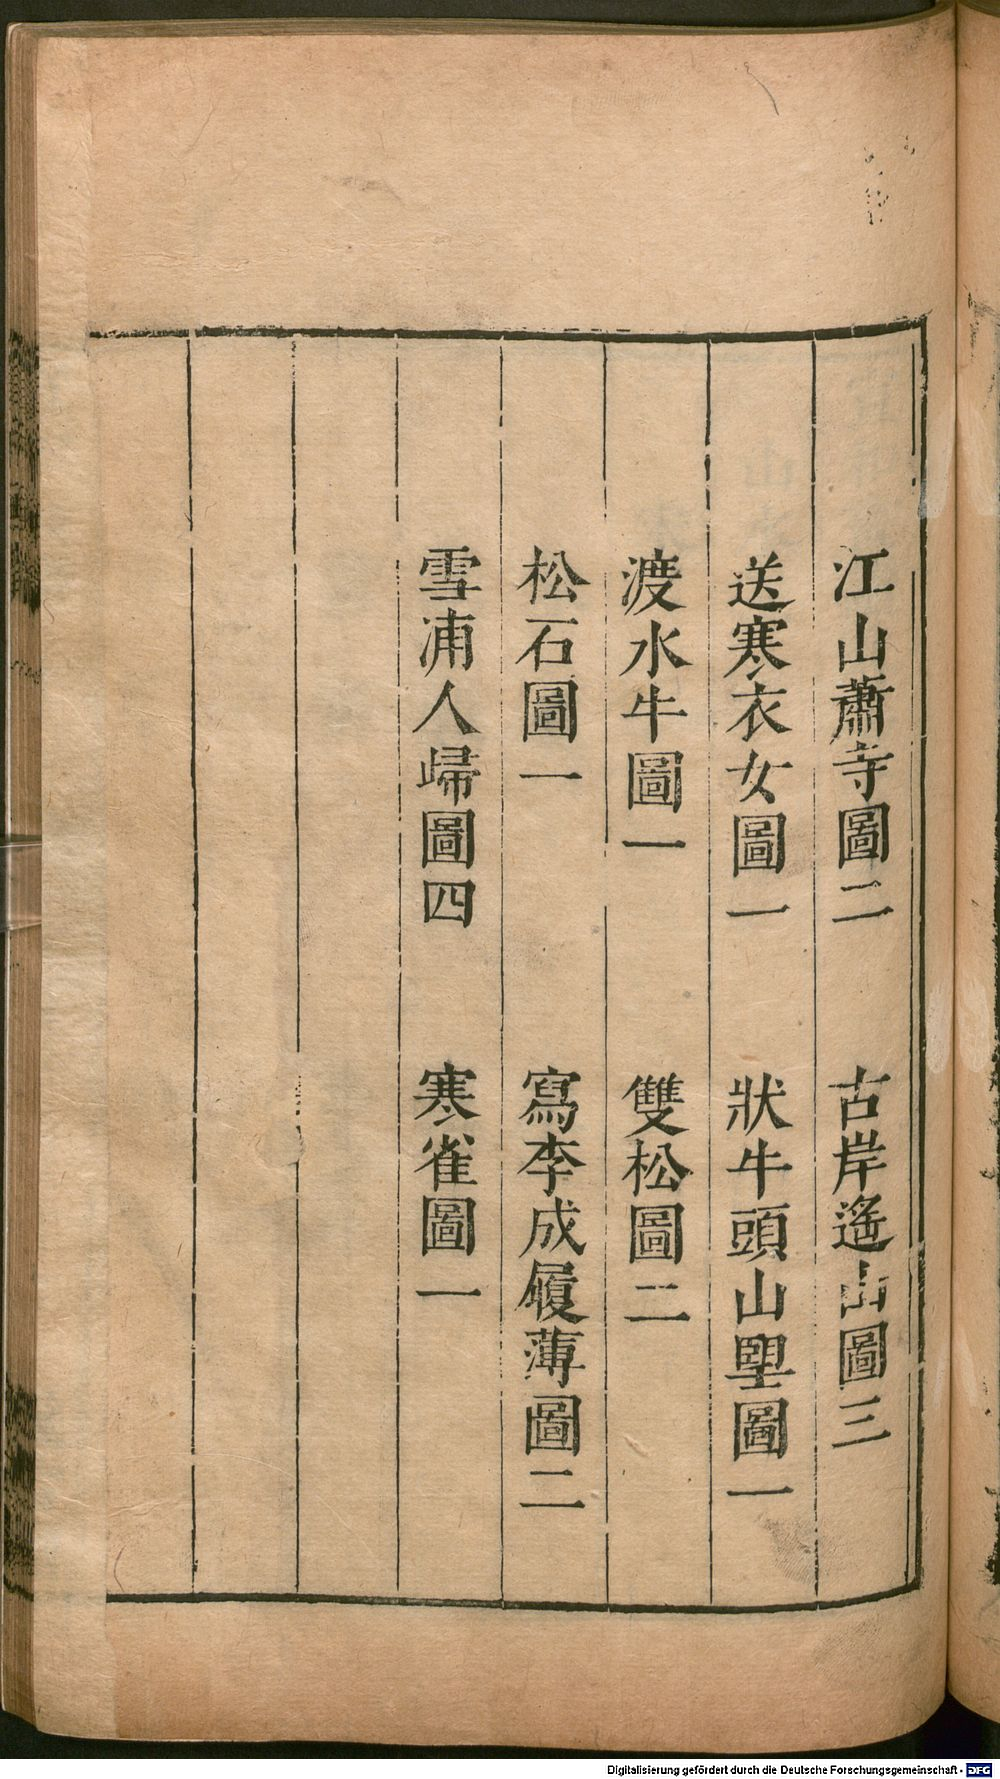 江山蕭寺圖二　古岸遙山圖三
送寒衣女圖一　狀牛頭山望圖一
渡水牛圖一　雙松圖二
松石圖一　寫李成履薄圖二
雪浦人歸圖四　寒雀圖一
Digitalisierung gefördert durch die Deutsche Forschungsgemeinschaft - DFG